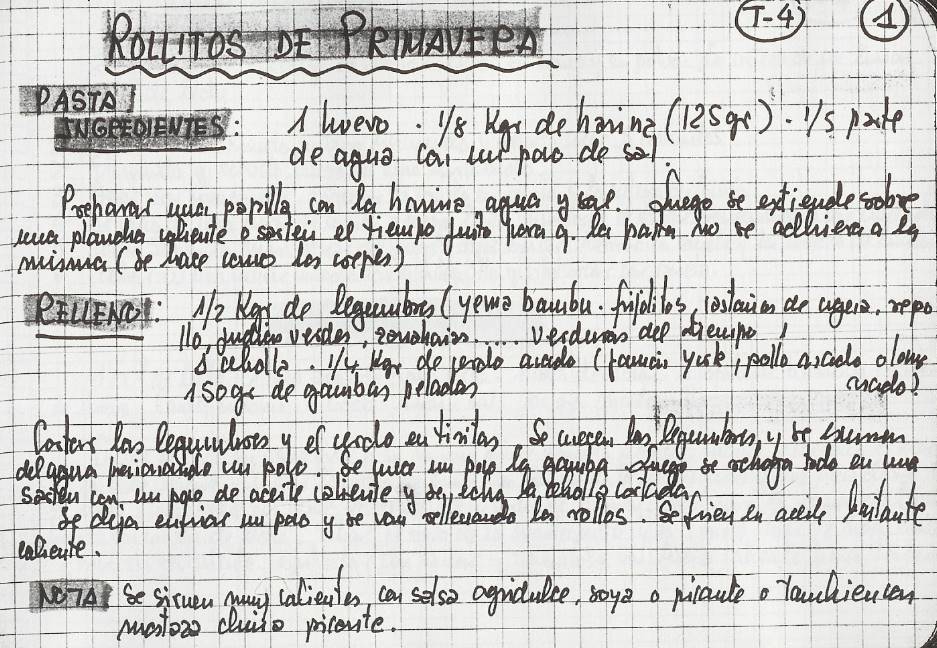 T-4 1
ROLLITOS DE PRIMAVERA
PASTA
INGREDIENTES: 1 huevo . 1/8 Kgr de harina (125gr) . 1/5 parte
de agua con un poco de sal.
Preparar una papilla con la harina, agua y sal. Luego se extiende sobre
una plancha caliente o sartén el tiempo justo para q. la pasta no se adhiera a la
misma (se hace como los crepés)
RELLENO: 1/2 Kgr de legumbres (yema bambu. frijolitos, castañas de agua, repo
llo, judias verdes, zanahorias.... verduras del tiempo,
1 cebolla . 1/4 Kgr de cerdo asado (jamón york, pollo asado o lomo
150gr de gambas peladas asado)
Cortar las legumbres y el cerdo en tiritas. Se cuecen las legumbres, y se
del agua presionando un poco. Se cuece un poco la gamba. Luego se rehoga todo en una
sartén con un poco de aceite caliente y se echa la cebolla cortada.
Se deja enfriar un poco y se van rellenando los rollos. Se frien en aceite bastante
caliente.
NOTA Se sirven muy calientes, con salsa agridulce, soya o picante o tambien con
mostaza china picante.